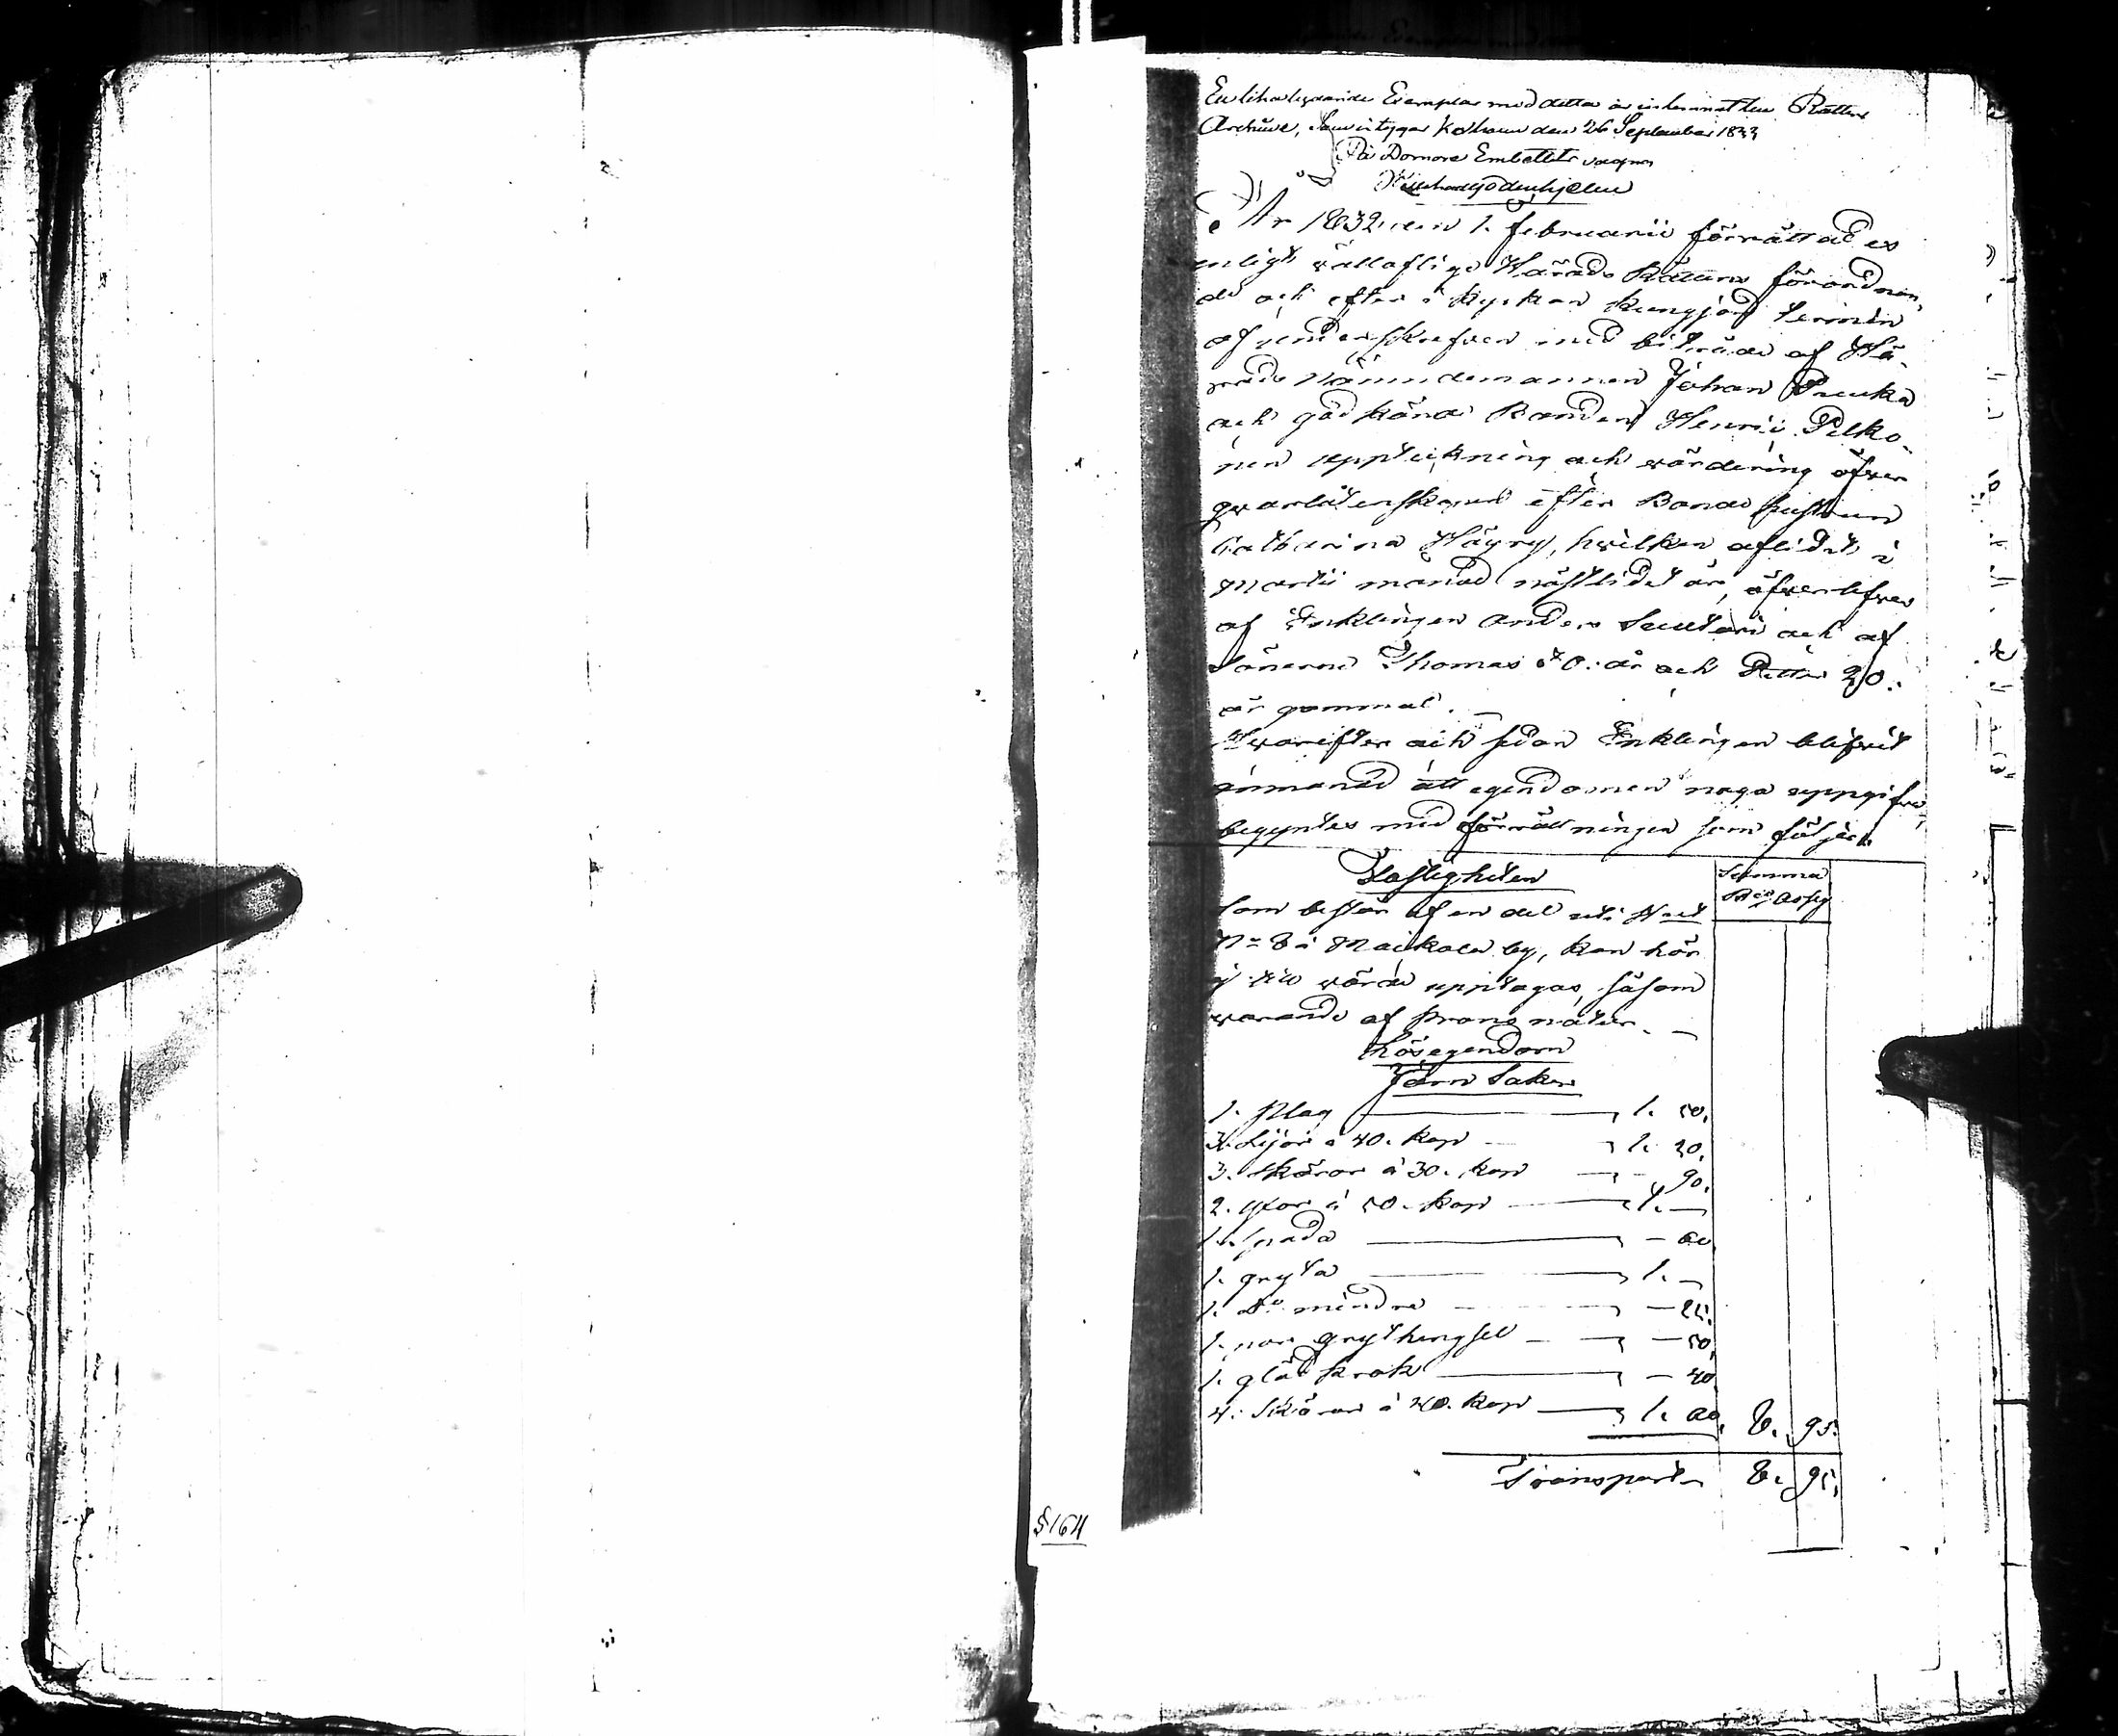 Ett lika lydande Exemplar med detta är inlemnat till Rättens
Archive, Som intygar Kexholm den 26 September 1833
På Domare Embetets vägnar
År 1832 den 1. februarii förrättades
enligt wällofliga Härads Rättens förordnan,
de och efter i Kyrkan kungjord termin
af underskrefven med biträde af Hä-
rads Nämndemannen Johan Puukka
och godkände Bonden Henric Pelko-
nen uppteckning och wärdering öfwer
qwarlåtenskapen efter Bonde hustrun
Catharina Häyry, hwilken aflidit i
Martii månad nästlidet år, öfwerlefwes
af Enklingen Anders Suutari och af
Sönerne Thomas 40. år och Petter 20.
år gammal. —
Hwarefter och sedan Enklingen blifwit
anmanad att egendomen noga uppgifwa,
begyntes med förrättningen som följer.
Fastigheten
Summa
B:co Assig
Som består af en del uti N:et
N= 8 i Maikola by, kan här
ej till wärde upptagas, såsom
warande af Krono natur. —
Lösegendom
Järn Saker
1. plog — 1. 50.
3. Lijor á 40. kop — 1. 20.
3. skäror á 30. kop — 90.
2. yxor á 50. kop — 1. —
1. spada — 60.
1. gryta — 1. —
1. d:o mindre — 25.
1. par grythengsel — 50.
1. glöd krok — 40.
4. Skäror á 40. kop — 1. 60. 8. 95.
Transport 8. 95.
§ 164